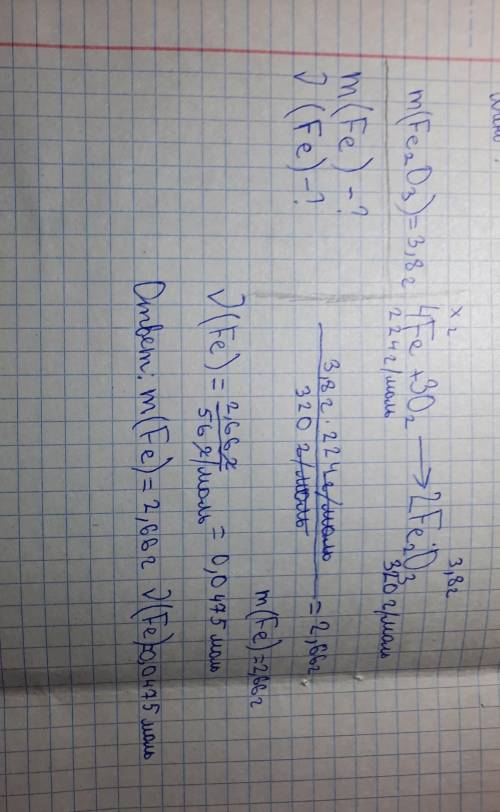 m(Fe₂O₃)=3,8г
m(Fe)-?
ν(Fe)-?
x г 3,8г
4Fe+3O₂ → 2Fe₂O₃
224г/моль 320г/моль
3,8г·224г/моль / 320 г/моль = 2,66г
m(Fe)=2,66г
ν(Fe) = 2,66г / 56 г/моль = 0,0475 моль
Ответ: m(Fe)=2,66г ν(Fe)=0,0475 моль